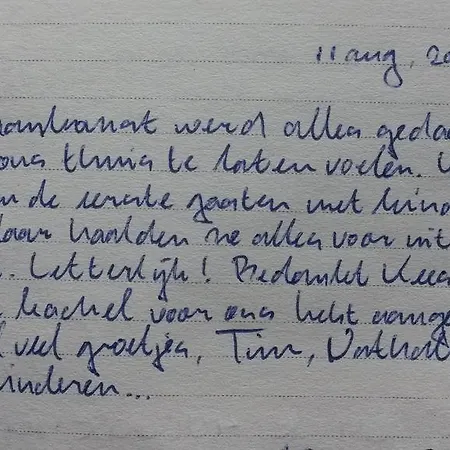 11 aug, 20
werd alles gedaa
ons thuis te laten voelen. W
n de eerste gasten met kind
daar haalden ze alles voor uit
. Letterlijk! Bedankt Kees
kachel voor ons hebt aange
l veel groetjes, Tim,
inderen...